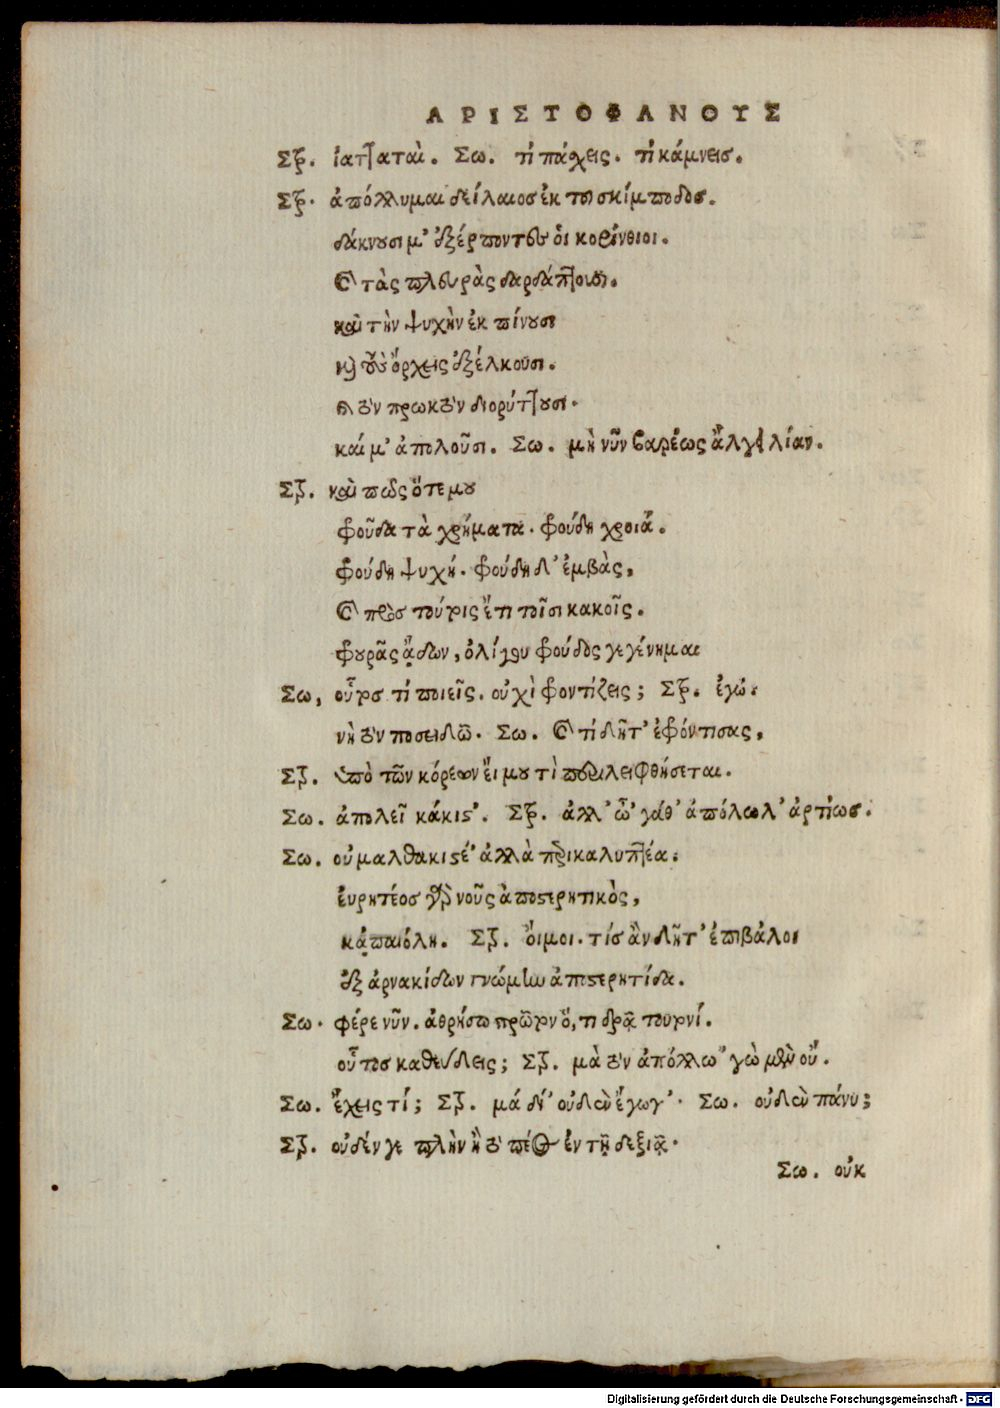 ΑΡΙΣΤΟΦΑΝΟΥΣ
Στρ. ἰατταταὶ. Σω. τί πάχεις. τί κάμνεισ.
Στρ. ἀπόλλυμαι δείλαιοσ ἐκ τοῦ σκίμποδοσ.
δάκνουσι μ' ἐξέρποντες οἱ κορίνθιοι.
καὶ τὰς πλευρὰς δαρδάπτουσι.
καὶ τὴν ψυχὴν ἐκ πίνουσι
καὶ τοὺς ὄρχεις ἐξέλκουσι.
καὶ τὸν πρωκτὸν διορύττουσι.
καί μ' ἀπολοῦσι. Σω. μὴ νῦν βαρέως ἄλγει λίαν.
Στρ. καὶ πῶς ὅτε μου
φροῦδα τὰ χρήματα. φρούδη χροιά.
φρούδη ψυχή. φρούδη δ' ἐμβὰς,
καὶ πρὸς τούτοις ἔτι τοῖσι κακοῖς.
φρουρᾶς ᾄδων, ὀλίγου φροῦδος γεγένημαι
Σω, οὗτοσ τί ποιεῖς. οὐχὶ φροντίζεις; Στρ. ἐγώ.
νὴ τὸν ποσειδῶ. Σω. καὶ τί δῆτ' ἐφρόντισας,
Στρ. ὑπὸ τῶν κόρεων εἴ μου τὶ περιλειφθήσεται.
Σω. ἀπολεῖ κάκιστ'. Στρ. ἀλλ' ὦ' γάθ' ἀπόλωλ' ἀρτίωσ.
Σω. οὐ μαλθακιστέ' ἀλλὰ περικαλυπτέα.
εὑρητέοσ γὰρ νοῦς ἀποστερητικὸς,
κἀπαιόλη. Στρ. οἴμοι. τίσ ἂν δῆτ' ἐπιβάλοι
ἐξ ἀρνακίδων γνώμην ἀποστερητίδα.
Σω. φέρε νῦν. ἀθρήσω πρῶτον ὅ, τι δρᾷ τουτονί.
οὗτοσ καθεύδεις; Στρ. μὰ τὸν ἀπόλλω' γὼ μὲν οὔ.
Σω. ἔχεις τί; Στρ. μά δί' οὐδὲν ἔγωγ'. Σω. οὐδὲν πάνυ;
Στρ. οὐδέν γε πλὴν ἢ τὸ πέος ἐν τῇ δεξιᾷ.
Σω. οὐκ
Digitalisierung gefördert durch die Deutsche Forschungsgemeinschaft - DFG